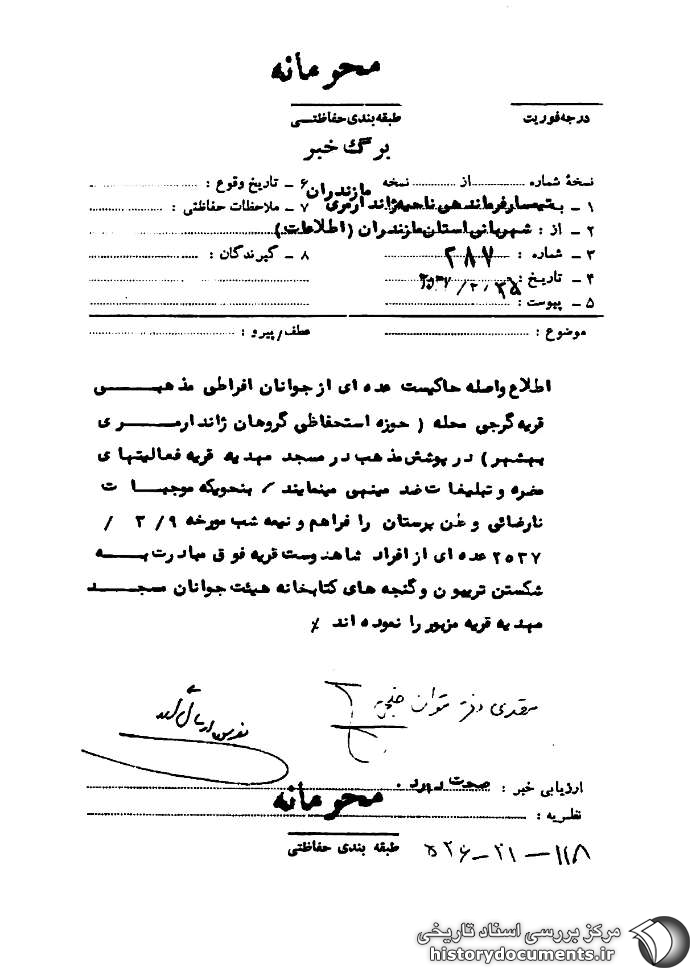 محرمانه
درجه فوریت
طبقه بندی حفاظتی
برگ خبر
نسخهٔ شماره ........ از ........ نسخه
۱ – به تیمسار فرماندهی ناحیه ژاندارمری مازندران
۲ – از : شهربانی استان مازندران (اطلاعات)
۳ – شماره : ۲۸۷
۴ – تاریخ : ۲۵/۳/۲۵۳۷
۵ – پیوست :
۶ – تاریخ وقوع :
۷ – ملاحظات حفاظتی :
۸ – گیرندگان :
موضوع :
عطف/پیرو :
اطلاع واصله حاکیست عده ای از جوانان افراطی مذهبی
قریه گرجی محله ( حوزه استحفاظی گروهان ژاندارمری
بهشهر ) در پوشش مذهب در مسجد مهدیه قریه فعالیتهای
مضره و تبلیغات ضد میهنی مینمایند / بنحویکه موجبات
نارضائی وطن پرستان را فراهم و نیمه شب مورخه ۹/ ۳ /
۲۵۳۷ عده ای از افراد شاهدوست قریه فوق مبادرت به
شکستن تریبون و گنجه های کتابخانه هیئت جوانان مسجد
مهدیه قریه مزبور را نموده اند /
ارزیابی خبر : صحت دارد .
نظریه :
محرمانه
طبقه بندی حفاظتی
۱۱۸–۲۱–۵۲۶
مرکز بررسی اسناد تاریخی
historydocuments.ir